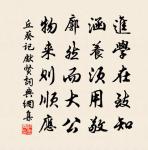 進學在致知
涵養須用敬
廓然而大公
物來則順應
丘葵记獻賢詞典網集